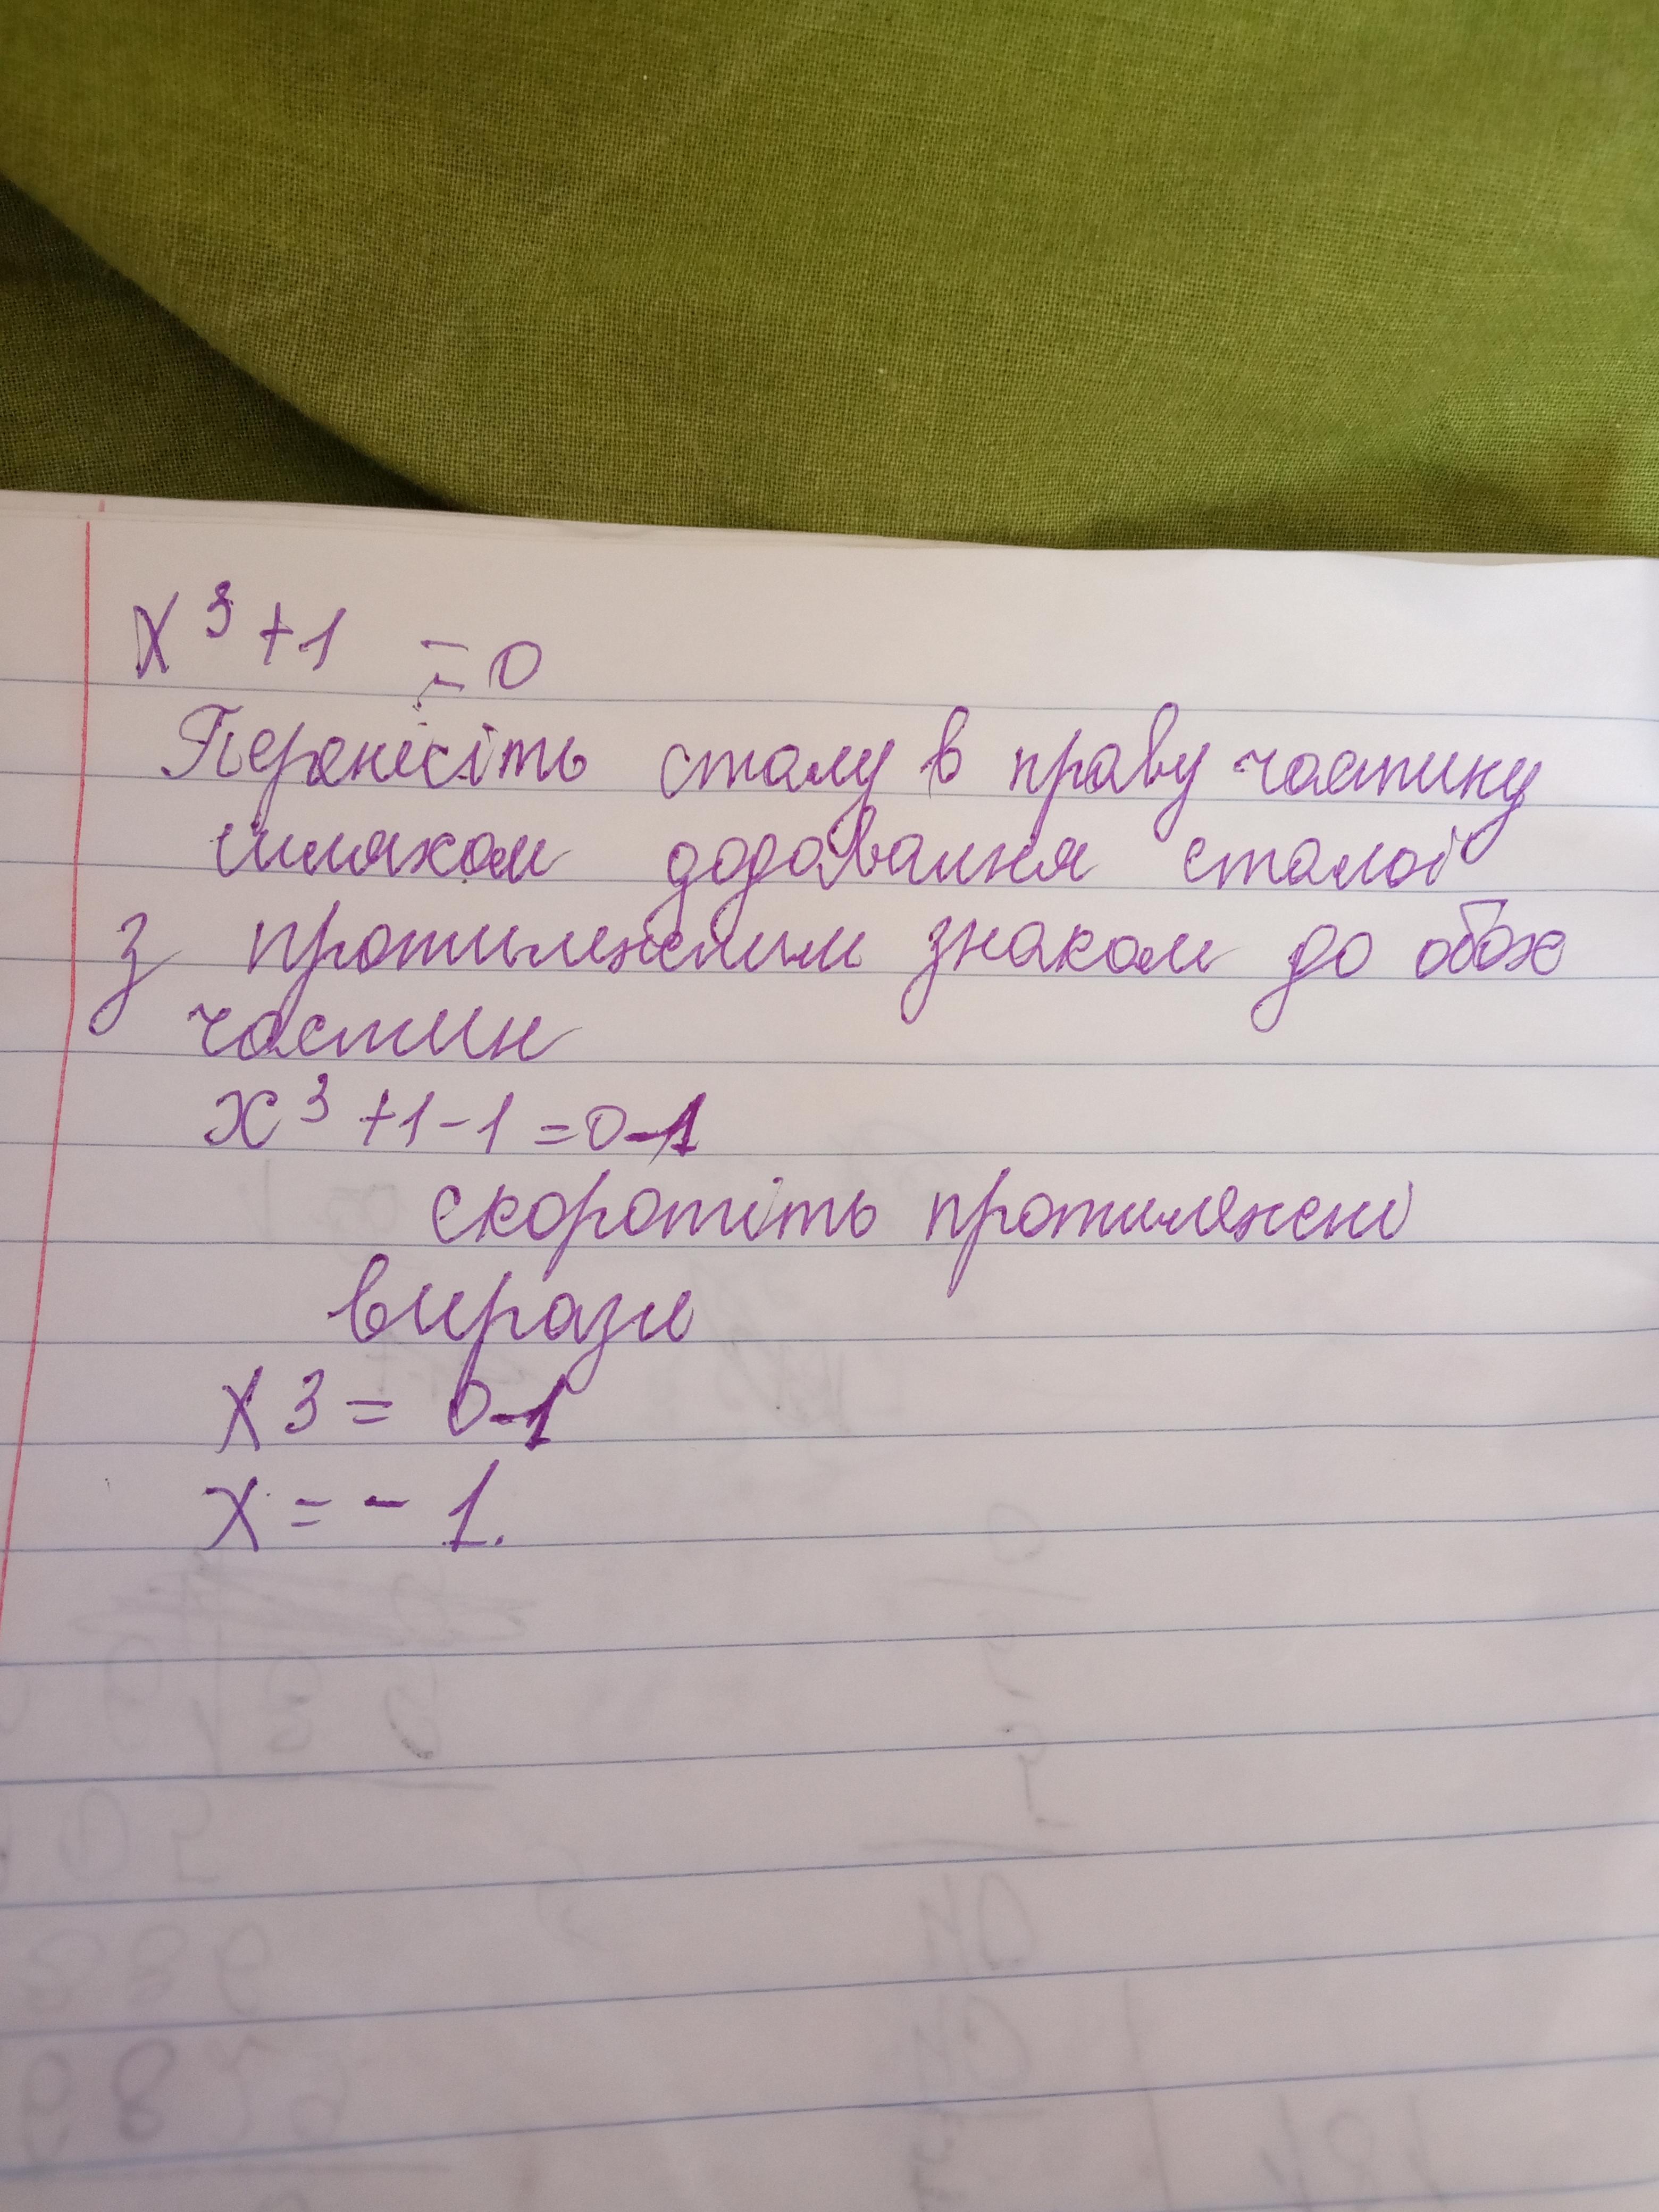 x³+1 = 0
Перенесіть сталу в праву частину
шляхом додавання сталої
з протилежним знаком до обох
частин
x³+1-1=0-1
скоротіть протилежні
вирази
x3= 0-1
x=-1.